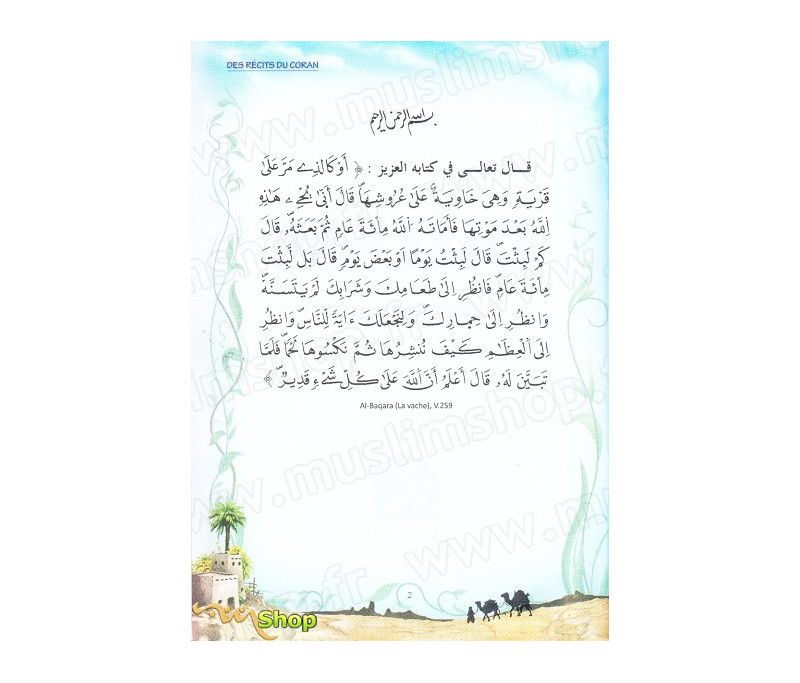 DES RÉCITS DU CORAN
بسم الله الرحمن الرحيم
قـــال تعالـــى في كتابه العزيز : ﴿ أَوْ كَالذِے مَرَّ عَلَىٰ
قَرْيَةٍ وَهِيَ خَاوِيَةٌ عَلَىٰ عُرُوشِهَا قَالَ أَنّىٰ يُحْيِۦ هَـٰذِهِ
اِ۬للَّهُ بَعْدَ مَوْتِهَا فَأَمَاتَهُ اُ۬للَّهُ مِاْئَةَ عَامٍ ثُمَّ بَعَثَهُۥ قَالَ
كَمْ لَبِثْتَ قَالَ لَبِثْتُ يَوْمًا اَوْ بَعْضَ يَوْمٍ قَالَ بَل لَّبِثْتَ
مِاْئَةَ عَامٍ فَانظُرِ اِلَىٰ طَعَامِكَ وَشَرَابِكَ لَمْ يَتَسَنَّهْ
وَانظُرِ اِلَىٰ حِمِارِكَ وَلِنَجْعَلَكَ ءَايَةً لِّلنَّاسِ وَانظُرِ
اِلَى اَ۬لْعِظَامِ كَيْفَ نُنشِرُهَا ثُمَّ نَكْسُوهَا لَحْمًا فَلَمَّا
تَبَيَّنَ لَهُۥ قَالَ أَعْلَمُ أَنَّ اَ۬للَّهَ عَلَىٰ كُلِّ شَےْءٍ قَدِيرٌ ﴾
Al-Baqara (La vache), V.259
2
Shop
www.muslimshop.fr